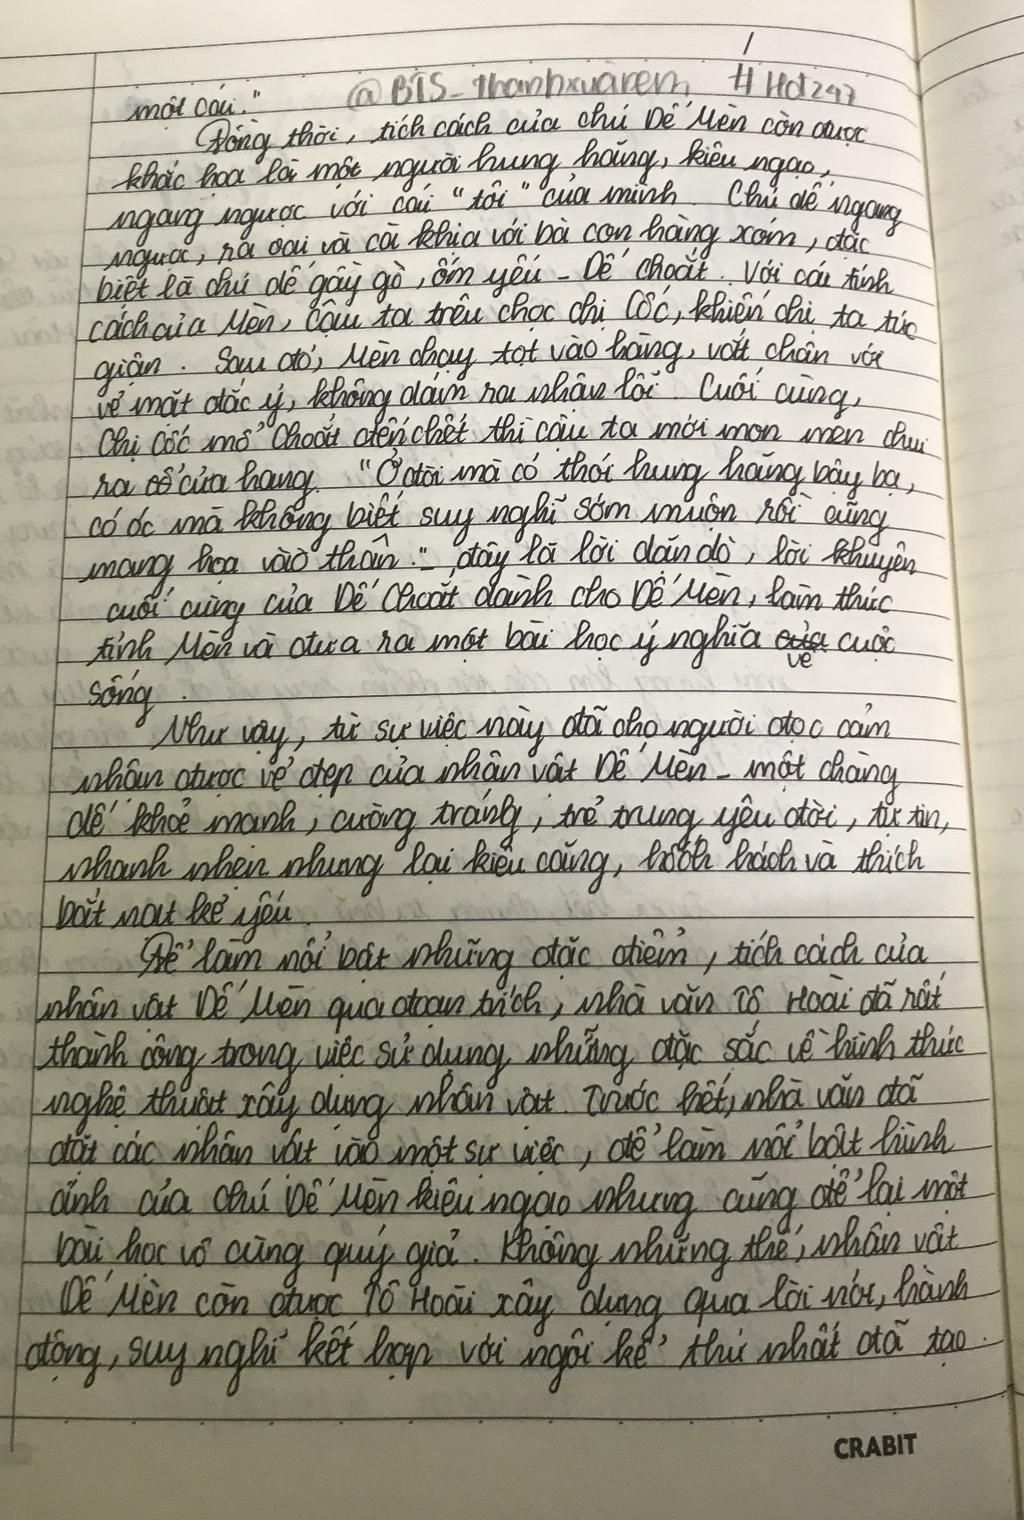 một cái."
@BTS_thanhxuarem # Hd247
Đồng thời, tích cách của chú Dế Mèn còn được
khác họa là một người hung hăng, kiêu ngạo,
ngang ngược với cái "tôi" của mình. Chú dế ngang
ngược, ra oai và cà khịa với bà con hàng xóm, đặc
biệt là chú dế gầy gò, ốm yếu - Dế Choắt. Với cái tính
cách của Mèn, cậu ta trêu chọc chị Cốc, khiến chị ta tức
giận. Sau đó, Mèn chạy tọt vào hàng, vắt chân với
vẻ mặt đắc ý, không dám ra nhận lỗi. Cuối cùng,
Chị Cốc mổ Choắt đến chết thì cậu ta mới mon men chui
ra cửa hang. "Ở đời mà có thói hung hăng bậy bạ,
có óc mà không biết suy nghĩ sớm muộn rồi cũng
mang họa vào thân." - đây là lời dặn dò, lời khuyên
cuối cùng của Dế Choắt dành cho Dế Mèn, làm thức
tỉnh Mèn và đưa ra một bài học ý nghĩa về cuộc
sống.
Như vậy, từ sự việc này đã cho người đọc cảm
nhận được vẻ đẹp của nhân vật Dế Mèn - một chàng
dế khoẻ mạnh, cường tráng, trẻ trung yêu đời, tự tin,
nhanh nhẹn nhưng lại kiêu căng, hách và thích
bắt nạt kẻ yếu.
Để làm nổi bật những đặc điểm, tích cách của
nhân vật Dế Mèn qua đoạn trích, nhà văn Tô Hoài đã rất
thành công trong việc sử dụng những đặc sắc về hình thức
nghệ thuật xây dựng nhân vật. Trước hết, nhà văn đã
đặt các nhân vật vào một sự việc, để làm nổi bật hình
ảnh của chú Dế Mèn kiêu ngạo nhưng cũng để lại một
bài học vô cùng quý giá. Không những thế, nhân vật
Dế Mèn còn được Tô Hoài xây dựng qua lời nói, hành
động, suy nghĩ kết hợp với ngôi kể thứ nhất đã tạo
CRABIT